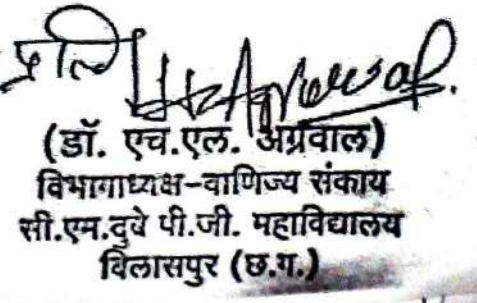 प्रति HLAgrawal.
(डॉ. एच.एल. अग्रवाल)
विभागाध्यक्ष-वाणिज्य संकाय
सी.एम.दुबे पी.जी. महाविद्यालय
बिलासपुर (छ.ग.)